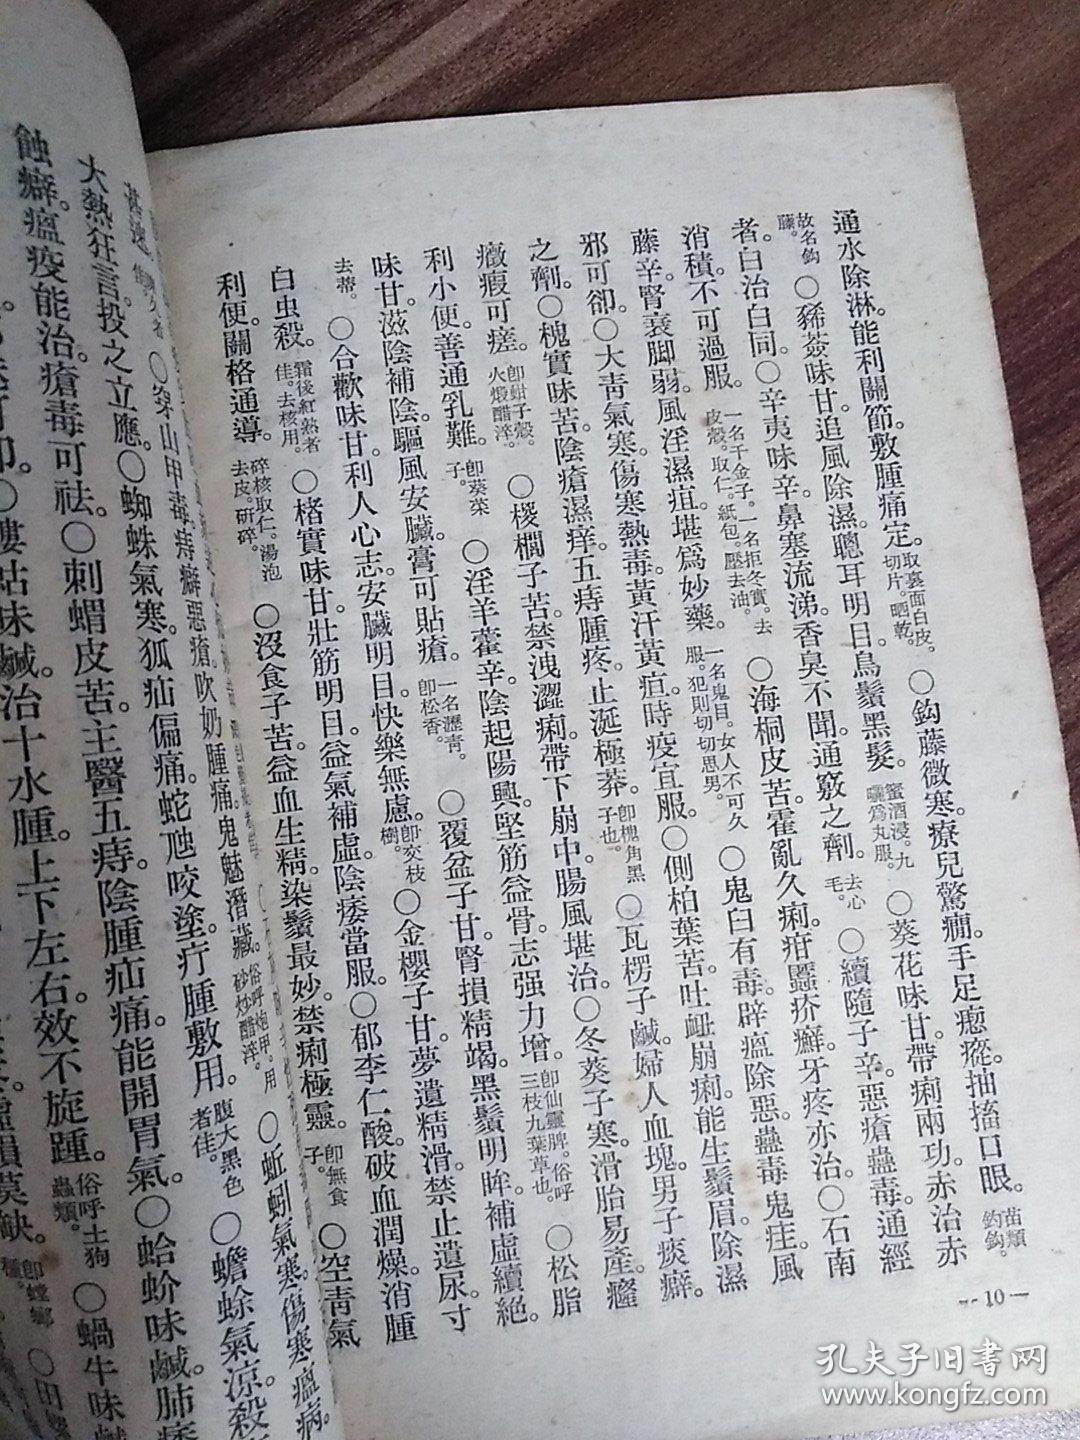 通水除淋。能利關節。敷腫痛定。取裏面白皮。切片。晒乾。○鈎藤微寒。療兒驚癇。手足瘛瘲。抽搐口眼。苗類鈎鈎。
故名鈎藤。○豨薟味甘。追風除濕。聰耳明目。烏鬚黑髮。蜜酒浸。九曬爲丸服。○葵花味甘。帶痢兩功。赤治赤
者。白治白同。○辛夷味辛。鼻塞流涕。香臭不聞。通竅之劑。去心毛。○續隨子辛。惡瘡蠱毒。通經
消積。不可過服。一名千金子。一名拒冬實。去皮殼。取仁。紙包。壓去油。○海桐皮苦。霍亂久痢。疳䘌疥癬。牙疼亦治。○石南
藤辛。腎衰脚弱。風淫濕疽。堪爲妙藥。一名鬼目。女人不可久服。犯則切切思男。○鬼臼有毒。辟瘟除惡。蠱毒鬼疰。風
邪可卻。○大靑氣寒。傷寒熱毒。黃汗黃疸。時疫宜服。○側柏葉苦。吐衄崩痢。能生鬚眉。除濕
之劑。○槐實味苦。陰瘡濕痒。五痔腫疼。止涎極莽。卽槐角黑子也。○瓦楞子鹹。婦人血塊。男子痰癖。
癥瘕可瘥。卽蚶子殼。火煅醋淬。○椶櫚子苦。禁洩澀痢。帶下崩中。腸風堪治。○冬葵子寒。滑胎易產。癃
利小便。善通乳難。卽葵菜子。○淫羊藿辛。陰起陽興。堅筋益骨。志强力增。卽仙靈脾。俗呼三枝九葉草也。○松脂
味甘。滋陰補陰。驅風安臟。膏可貼瘡。一名瀝靑。卽松香。○覆盆子甘。腎損精竭。黑鬚明眸。補虛續絕。
去蒂。○合歡味甘。利人心志。安臟明目。快樂無慮。卽交枝樹。○金櫻子甘。夢遺精滑。禁止遺尿。寸
白虫殺。霜後紅熟者佳。去核用。○楮實味甘。壯筋明目。益氣補虛。陰痿當服。○郁李仁酸。破血潤燥。消腫
利便。關格通導。碎核取仁。湯泡去皮。研碎。○沒食子苦。益血生精。染鬚最妙。禁痢極靈。卽無食子。○空靑氣
—10—
○穿山甲毒。痔癖惡瘡。吹奶腫痛。鬼魅潛藏。俗呼炮甲。用砂炒醋淬。○蚯蚓氣寒。傷寒瘟病。
大熱狂言。投之立應。○蜘蛛氣寒。狐疝偏痛。蛇虺咬塗。疔腫敷用。腹大黑色者佳。○蟾蜍氣涼。殺
蝕癖。瘟疫能治。瘡毒可祛。○刺蝟皮苦。主醫五痔。陰腫疝痛。能開胃氣。○蛤蚧味鹹。肺
○螻蛄味鹹。治十水腫。上下左右。效不旋踵。俗呼土狗蟲類。○蝸牛味鹹
孔夫子旧书网
www.kongfz.com